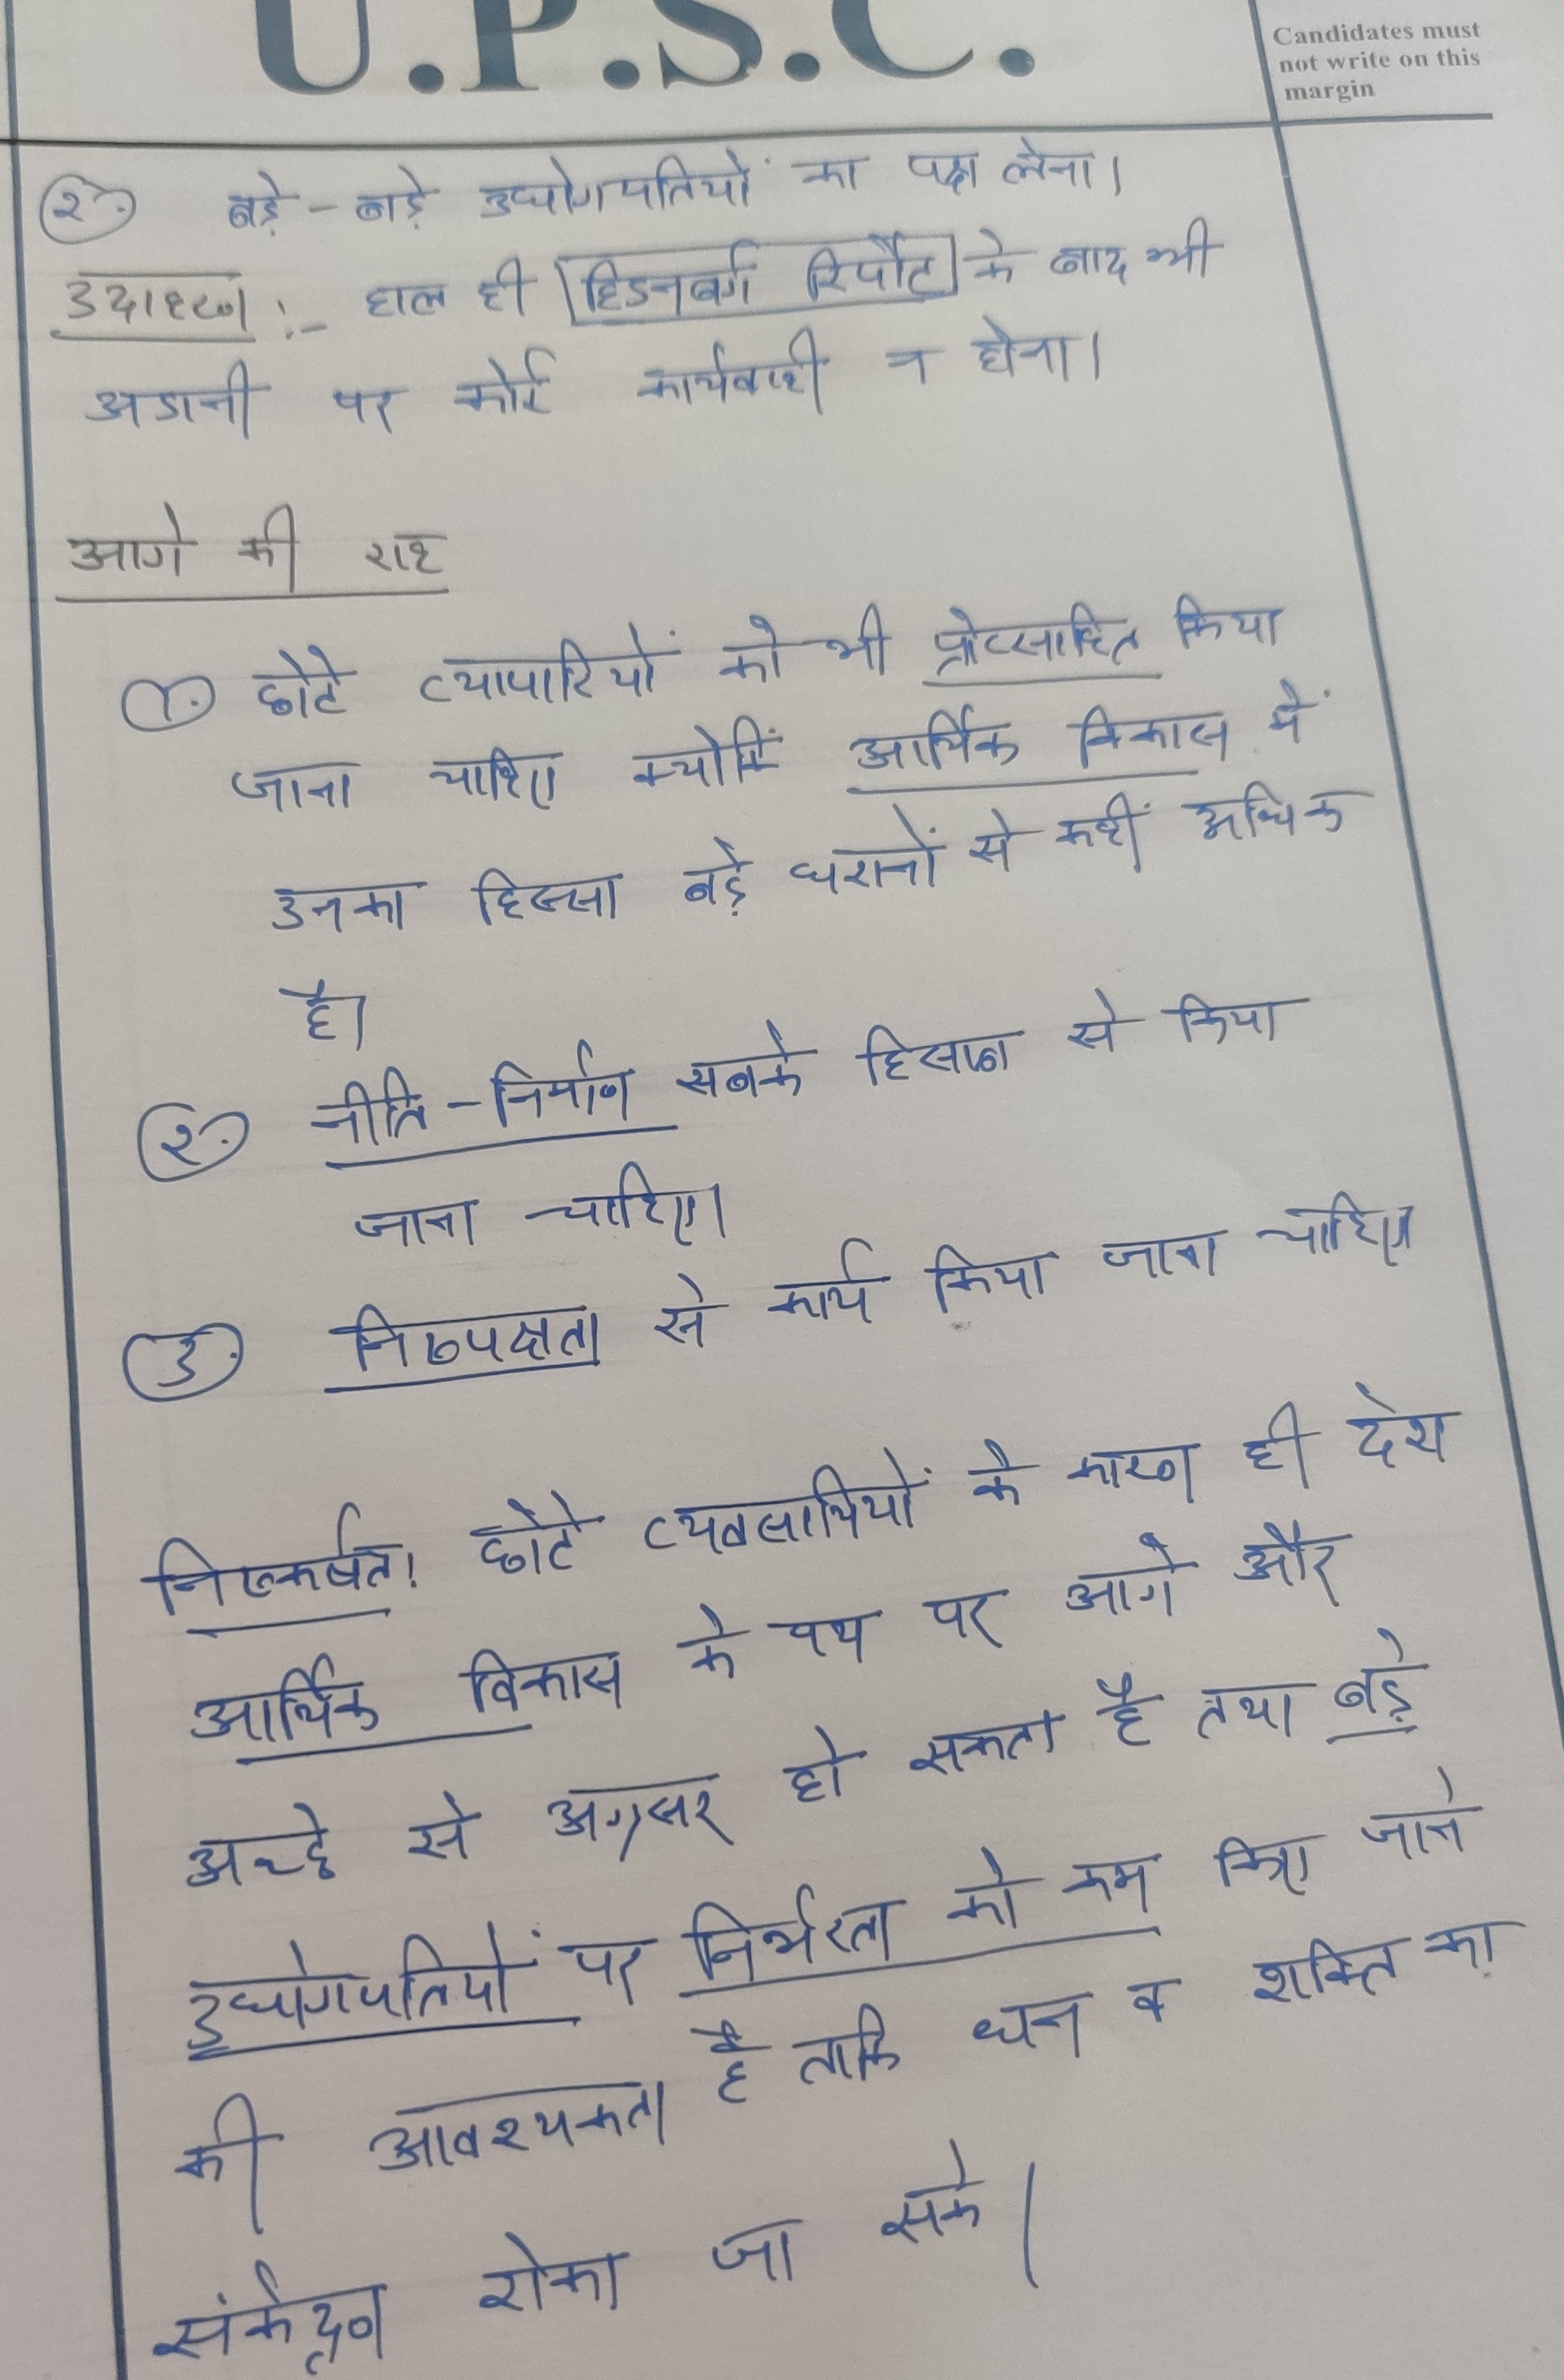 U.P.S.C.
Candidates must
not write on this
margin
२. बड़े - बड़े उद्योगपतियों का पक्ष लेना।
उदाहरण :- हाल ही हिडनबर्ग रिर्पोट के बाद भी
अडानी पर कोई कार्यवाही न होना।
आगे की राह
१. छोटे व्यापारियों को भी प्रोत्साहित किया
जाना चाहिए क्योंकिं आर्थिक विकास में
उनका हिस्सा बड़े घरानों से कहीं अधिक
है।
२. नीति - निर्माण सबके हिसाब से किया
जाना चाहिए।
३. निष्पक्षता से कार्य किया जाना चाहिए
निष्कर्षत: छोटे व्यवसायियों के कारण ही देश
आर्थिक विकास के पथ पर आगे और
अच्छे से अग्रसर हो सकता है तथा बड़े
उद्योगपतियों पर निर्भरता को कम किए जाने
की आवश्यकता है ताकि धन व शक्ति का
संकेद्रण रोका जा सके।